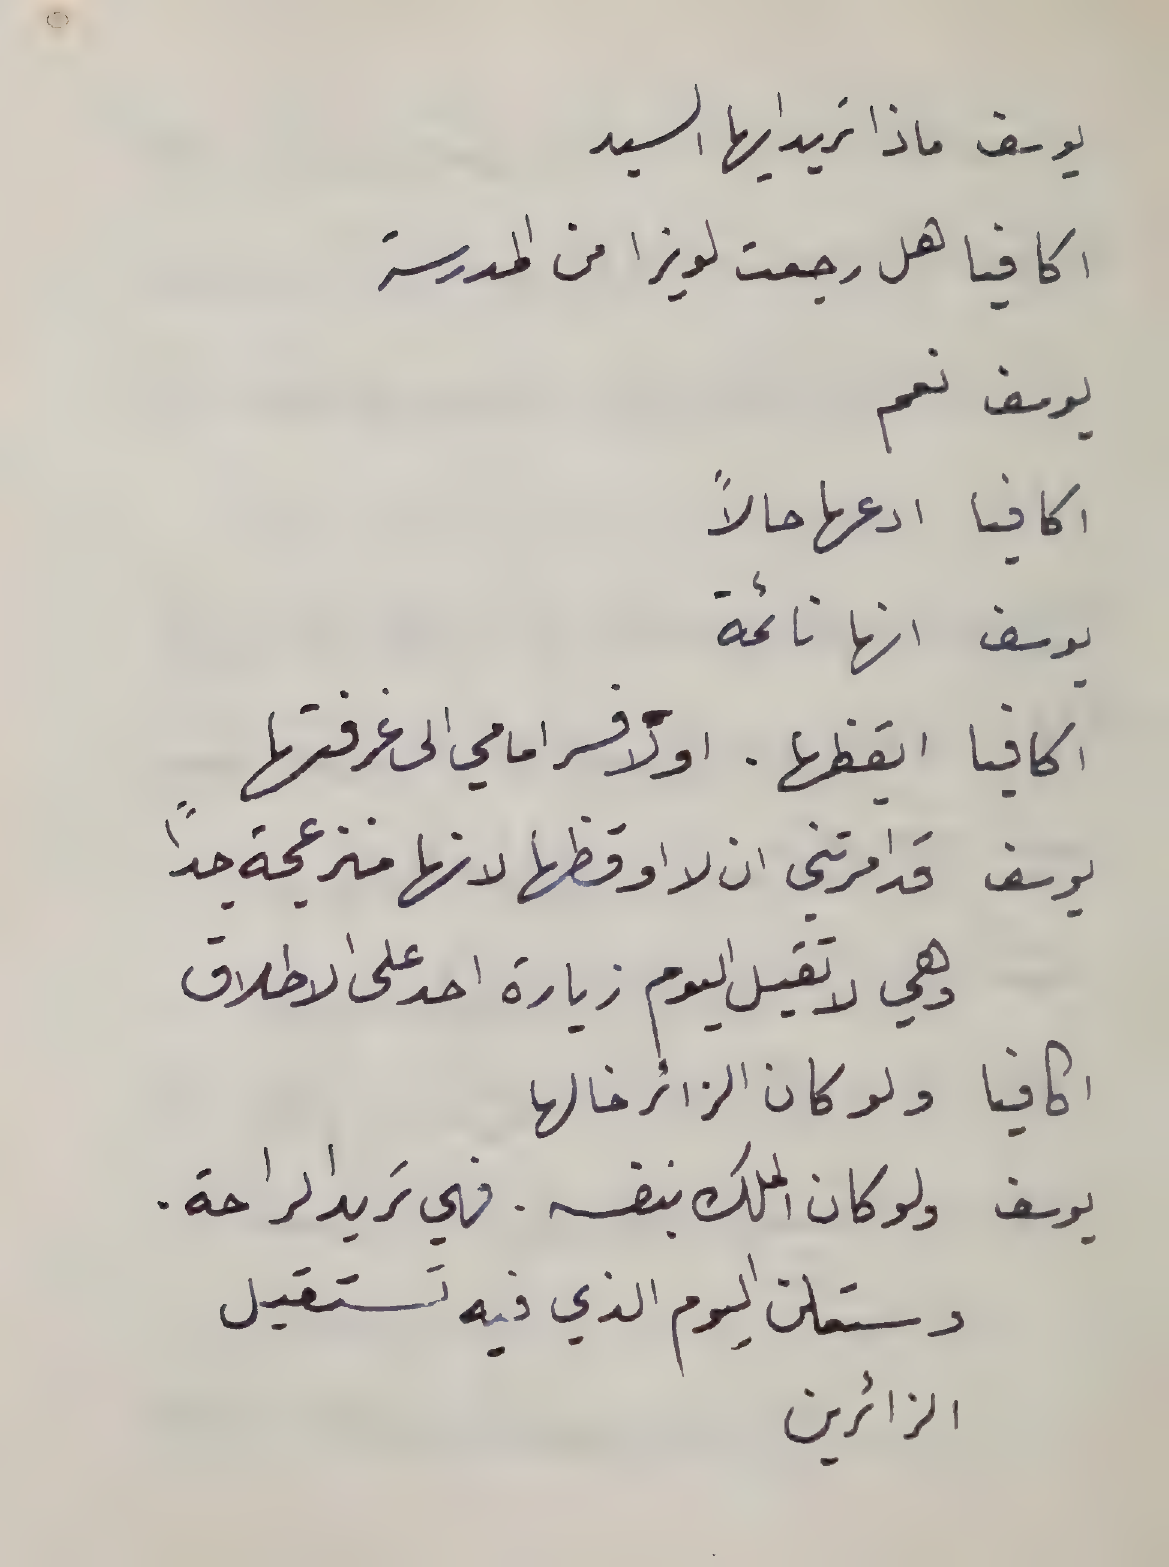 يوسف ماذا تريد ايها السيد
اكافيا هل رجعت لويزا من المدرسة
يوسف نعم
اكافيا ادعها حالاً
يوسف انها نائمة
اكافيا ايقظها . اولا فسر امامي الى غرفتها
يوسف قد امرتني ان لا اوقظها لانها منزعجة جداً
وهي لا تقبل اليوم زيارة احد على الاطلاق
اكافيا ولو كان الزائر خالها
يوسف ولو كان الملك بنفسه . فهي تريد الراحة .
وستعلن اليوم الذي فيه تستقبل
الزائرين